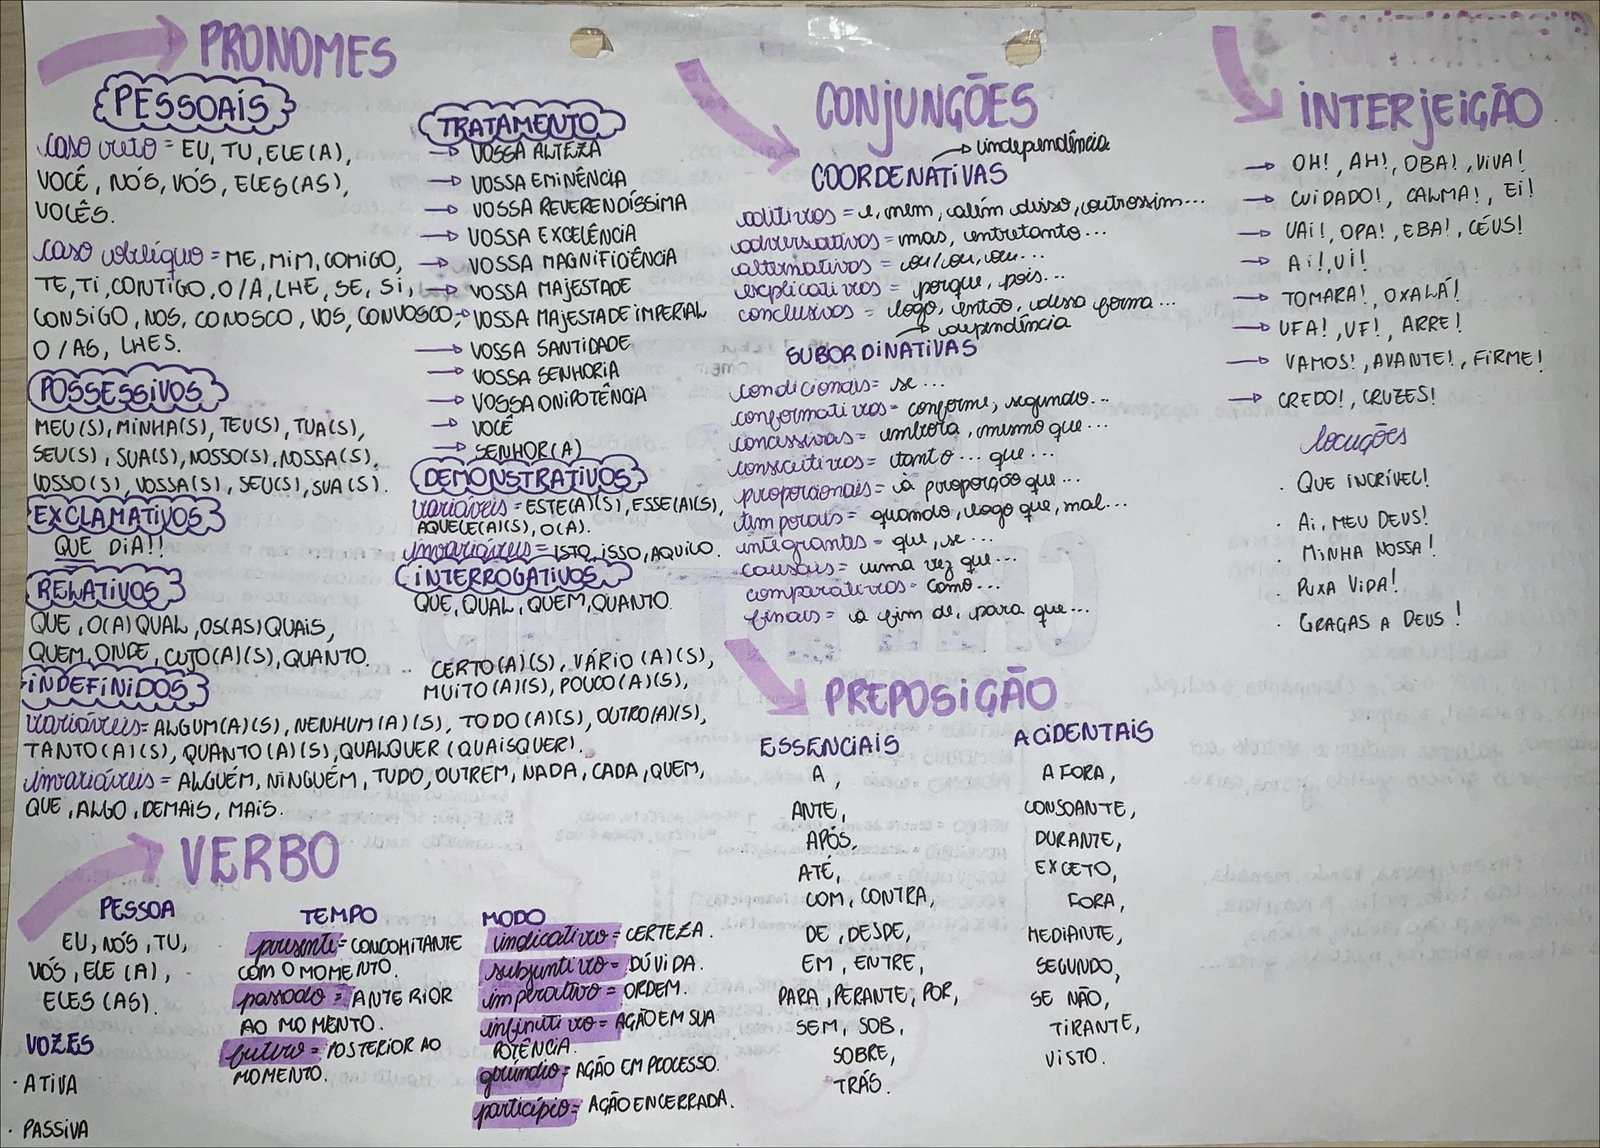 PRONOMES
PESSOAIS
caso reto = EU, TU, ELE(A),
VOCÊ, NÓS, VÓS, ELES(AS),
VOCÊS.
caso oblíquo = ME, MIM, COMIGO,
TE, TI, CONTIGO, O/A, LHE, SE, SI,
CONSIGO, NOS, CONOSCO, VOS, CONVOSCO,
O/AS, LHES.
POSSESSIVOS
MEU(S), MINHA(S), TEU(S), TUA(S),
SEU(S), SUA(S), NOSSO(S), NOSSA(S),
VOSSO(S), VOSSA(S), SEU(S), SUA(S).
EXCLAMATIVOS
QUE DIA!!
RELATIVOS
QUE, O(A) QUAL, OS(AS) QUAIS,
QUEM, ONDE, CUJO(A)(S), QUANTO.
TRATAMENTO
→ VOSSA ALTEZA
→ VOSSA EMINÊNCIA
→ VOSSA REVERENDÍSSIMA
→ VOSSA EXCELÊNCIA
→ VOSSA MAGNIFICIÊNCIA
→ VOSSA MAJESTADE
→ VOSSA MAJESTADE IMPERIAL
→ VOSSA SANTIDADE
→ VOSSA SENHORIA
→ VOSSA ONIPOTÊNCIA
→ VOCÊ
→ SENHOR(A)
DEMONSTRATIVOS
variáveis = ESTE(A)(S), ESSE(A)(S),
AQUELE(A)(S), O(A).
invariáveis = ISTO, ISSO, AQUILO.
INTERROGATIVOS
QUE, QUAL, QUEM, QUANTO.
INDEFINIDOS
CERTO(A)(S), VÁRIO(A)(S),
MUITO(A)(S), POUCO(A)(S),
variáveis = ALGUM(A)(S), NENHUM(A)(S), TODO(A)(S), OUTRO(A)(S),
TANTO(A)(S), QUANTO(A)(S), QUALQUER (QUAISQUER).
invariáveis = ALGUÉM, NINGUÉM, TUDO, OUTREM, NADA, CADA, QUEM,
QUE, ALGO, DEMAIS, MAIS.
VERBO
PESSOA
EU, NÓS, TU,
VÓS, ELE (A),
ELES (AS).
VOZES
· ATIVA
· PASSIVA
TEMPO
presente = CONCOMITANTE
COM O MOMENTO.
passado = ANTERIOR
AO MOMENTO.
futuro = POSTERIOR AO
MOMENTO.
MODO
indicativo = CERTEZA.
subjuntivo = DÚVIDA.
imperativo = ORDEM.
infinitivo = AÇÃO EM SUA
POTÊNCIA.
gerúndio = AÇÃO EM PROCESSO.
particípio = AÇÃO ENCERRADA.
CONJUNÇÕES
→ independência
COORDENATIVAS
aditivos = e, nem, além disso, outrossim...
adversativos = mas, entretanto...
alternativos = ou/ou, ou...
explicativos = porque, pois...
conclusivos = logo, então, dessa forma...
→ dependência
SUBORDINATIVAS
condicionais = se...
conformativos = conforme, segundo...
concessivas = embora, mesmo que...
consecutivos = tanto... que...
proporcionais = à proporção que...
temporais = quando, logo que, mal...
integrantes = que, se...
causais = uma vez que...
comparativos = como...
finais = a fim de, para que...
PREPOSIÇÃO
ESSENCIAIS
A,
ANTE,
APÓS,
ATÉ,
COM, CONTRA,
DE, DESDE,
EM, ENTRE,
PARA, PERANTE, POR,
SEM, SOB,
SOBRE,
TRÁS.
ACIDENTAIS
A FORA,
CONSOANTE,
DURANTE,
EXCETO,
FORA,
MEDIANTE,
SEGUNDO,
SE NÃO,
TIRANTE,
VISTO.
INTERJEIÇÃO
→ OH!, AH!, OBA!, VIVA!
→ CUIDADO!, CALMA!, EI!
→ VAI!, OPA!, EBA!, CÉUS!
→ AI!, UI!
→ TOMARA!, OXALÁ!
→ UFA!, UF!, ARRE!
→ VAMOS!, AVANTE!, FIRME!
→ CREDO!, CRUZES!
locuções
· QUE INCRÍVEL!
· AI, MEU DEUS!
· MINHA NOSSA!
· PUXA VIDA!
· GRAÇAS A DEUS!